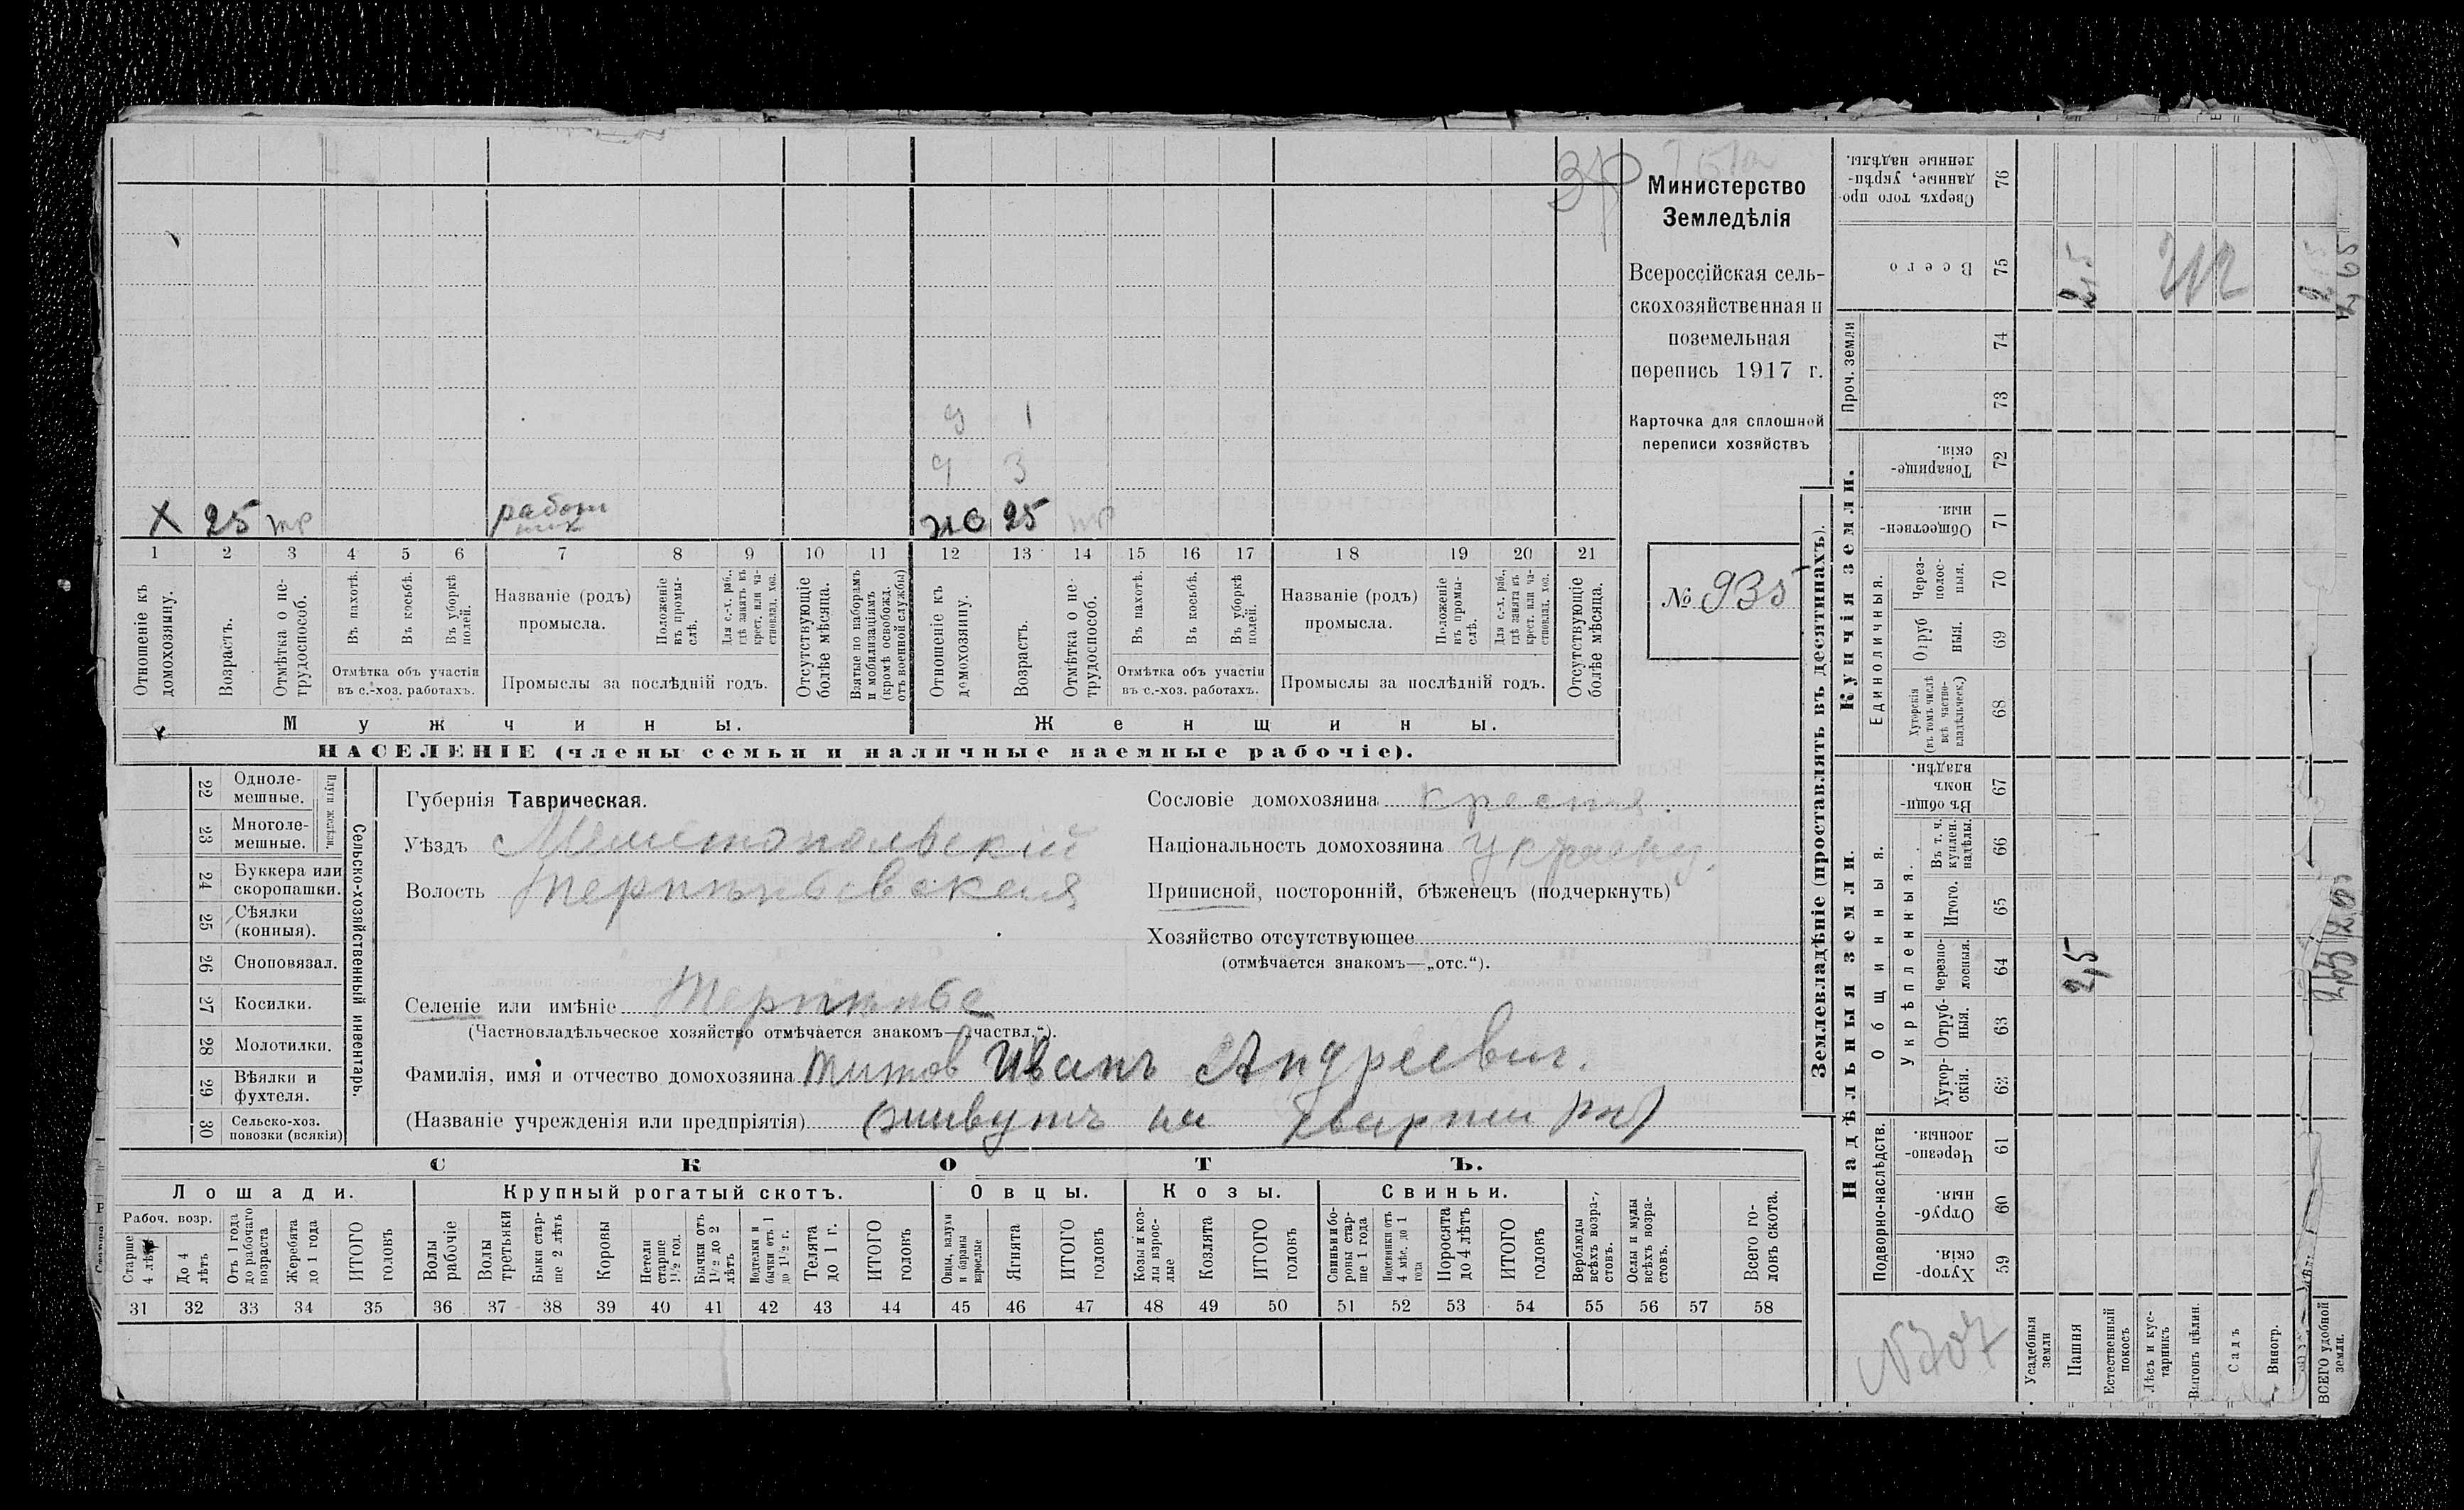 Министерство
Земледѣлія
Всероссійская сель-
скохозяйственная и
поземельная
перепись 1917 г.
Карточка для сплошной
переписи хозяйствъ
№ 935
д 1
д 3
х 25 тр работник
же 25 тр
1 2 3 4 5 6 7 8 9 10 11 12 13 14 15 16 17 18 19 20 21
Отношеніе къ домохозяину.
Возрастъ.
Отмѣтка о не-трудоспособ.
Въ пахотѣ.
Въ косьбѣ.
Въ уборкѣ полей.
Отмѣтка объ участіи въ с.-хоз. работахъ.
Названіе (родъ) промысла.
Положеніе въ промы-слѣ.
Для с.-х. раб., гдѣ занятъ въ крест. или ча-стновлад. хоз.
Промыслы за послѣдній годъ.
Отсутствующіе болѣе мѣсяца.
Взятые по наборамъ и мобилизаціямъ (кромѣ освобожд. отъ военной службы)
Отношеніе къ домохозяину.
Возрастъ.
Отмѣтка о не-трудоспособ.
Въ пахотѣ.
Въ косьбѣ.
Въ уборкѣ полей.
Отмѣтка объ участіи въ с.-хоз. работахъ.
Названіе (родъ) промысла.
Положеніе въ промы-слѣ.
Для с.-х. раб., гдѣ занята въ крест. или ча-стновлад. хоз.
Промыслы за послѣдній годъ.
Отсутствующіе болѣе мѣсяца.
Мужчины.
Женщины.
НАСЕЛЕНІЕ (члены семьи и наличные наемные рабочіе).
Сельско-хозяйственный инвентарь.
Плуги желѣзн.
22 Одноле-мешные.
23 Многоле-мешные.
24 Буккера или скоропашки.
25 Сѣялки (конныя).
26 Сноповязал.
27 Косилки.
28 Молотилки.
29 Вѣялки и фухтеля.
30 Сельско-хоз. повозки (всякія)
Губернія Таврическая.
Уѣздъ Мелитопольскій
Волость Терпѣньевская
Селеніе или имѣніе Терпѣнье
(Частновладѣльческое хозяйство отмѣчается знакомъ—„частвл.“).
Фамилія, имя и отчество домохозяина Титов Иванъ Андреевич.
(Названіе учрежденія или предпріятія) (живутъ на
Сословіе домохозяина крестья.
Національность домохозяина Украинц.
Приписной, посторонній, бѣженецъ (подчеркнуть)
Хозяйство отсутствующее
(отмѣчается знакомъ—„отс.“).
СКОТЪ.
Лошади.
Крупный рогатый скотъ.
Овцы.
Козы.
Свиньи.
Рабоч. возр.
Старше 4 лѣтъ
До 4 лѣтъ
Отъ 1 года до рабочаго возраста
Жеребята до 1 года
ИТОГО головъ
Волы рабочіе
Волы третьяки
Быки стар-ше 2 лѣтъ
Коровы
Нетели старше 1½ год.
Бычки отъ 1½ до 2 лѣтъ
Подтелки и бычки отъ 1 до 1½ г.
Телята до 1 г.
ИТОГО головъ
Овцы, валухи и бараны взрослые
Ягнята
ИТОГО головъ
Козы и коз-лы взрос-лые
Козлята
ИТОГО головъ
Свиньи и бо-ровы стар-ше 1 года
Подсвинки отъ 4 мѣс. до 1 года
Поросята до 4 лѣтъ
ИТОГО головъ
Верблюды всѣхъ возра-стовъ.
Ослы и мулы всѣхъ возра-стовъ.
Всего го-ловъ скота.
31 32 33 34 35 36 37 38 39 40 41 42 43 44 45 46 47 48 49 50 51 52 53 54 55 56 57 58
Землевладѣніе (проставлять въ десятинахъ).
Надѣльныя земли.
Купчія земли.
Проч. земли
Подворно-наслѣдств.
Общинныя.
Укрѣпленныя.
Единоличныя.
Сверхъ того про-данные, укрѣп-ленные надѣлы. 76
Всего 75 2,5
74
73
Товарище-скія. 72
Обществен-ныя. 71
Через-полос-ныя. 70
Отруб ныя. 69
Хуторскія (въ томъ числѣ всѣ частно-владѣльческ.) 68
Въ общи-номъ владѣн. 67
Въ т. ч. куплен. надѣлы. 66
Итого. 65
Черезпо-лосныя. 64 2,5
Отруб-ныя. 63
Хутор-скія. 62
Черезпо-лосныя. 61
Отруб-ныя. 60
Хутор-скія. 59
Усадебныя земли
Пашня
Естественный покосъ
Лѣсъ и кус-тарникъ
Выгонъ цѣлин.
Садъ
Виногр.
ВСЕГО удобной земли.